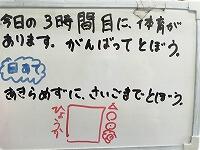 今日の3時間目に、体育が
あります。がんばってとぼう。
目あて
あきらめずに、さいごまでとぼう。
ひょうか
△○◎